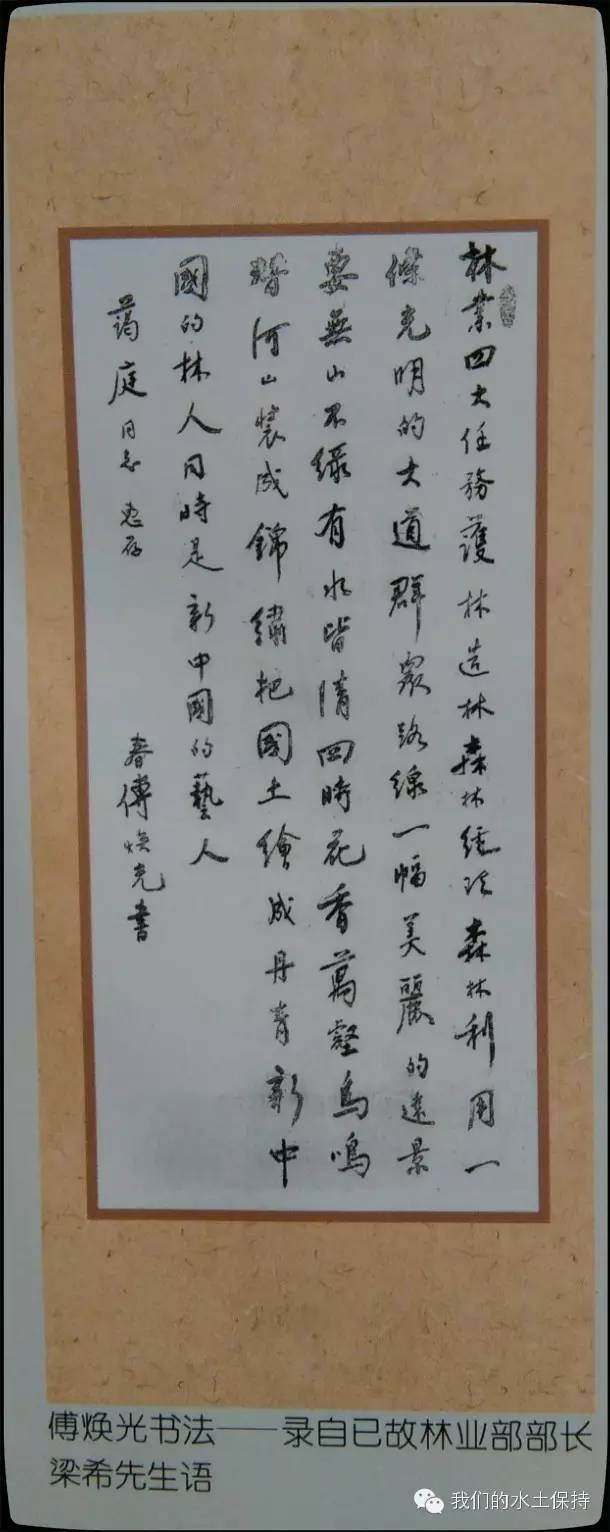 林業四大任務護林造林森林經理森林利用一
條光明的大道群眾路線一幅美麗的遠景
要無山不綠有水皆清四時花香萬壑鳥鳴
替河山裝成錦繡把國土繪成丹青新中
國的林人同時是新中國的藝人
藹庭同志惠存
春傅煥光書
傅焕光书法——录自已故林业部部长
梁希先生语
我们的水土保持